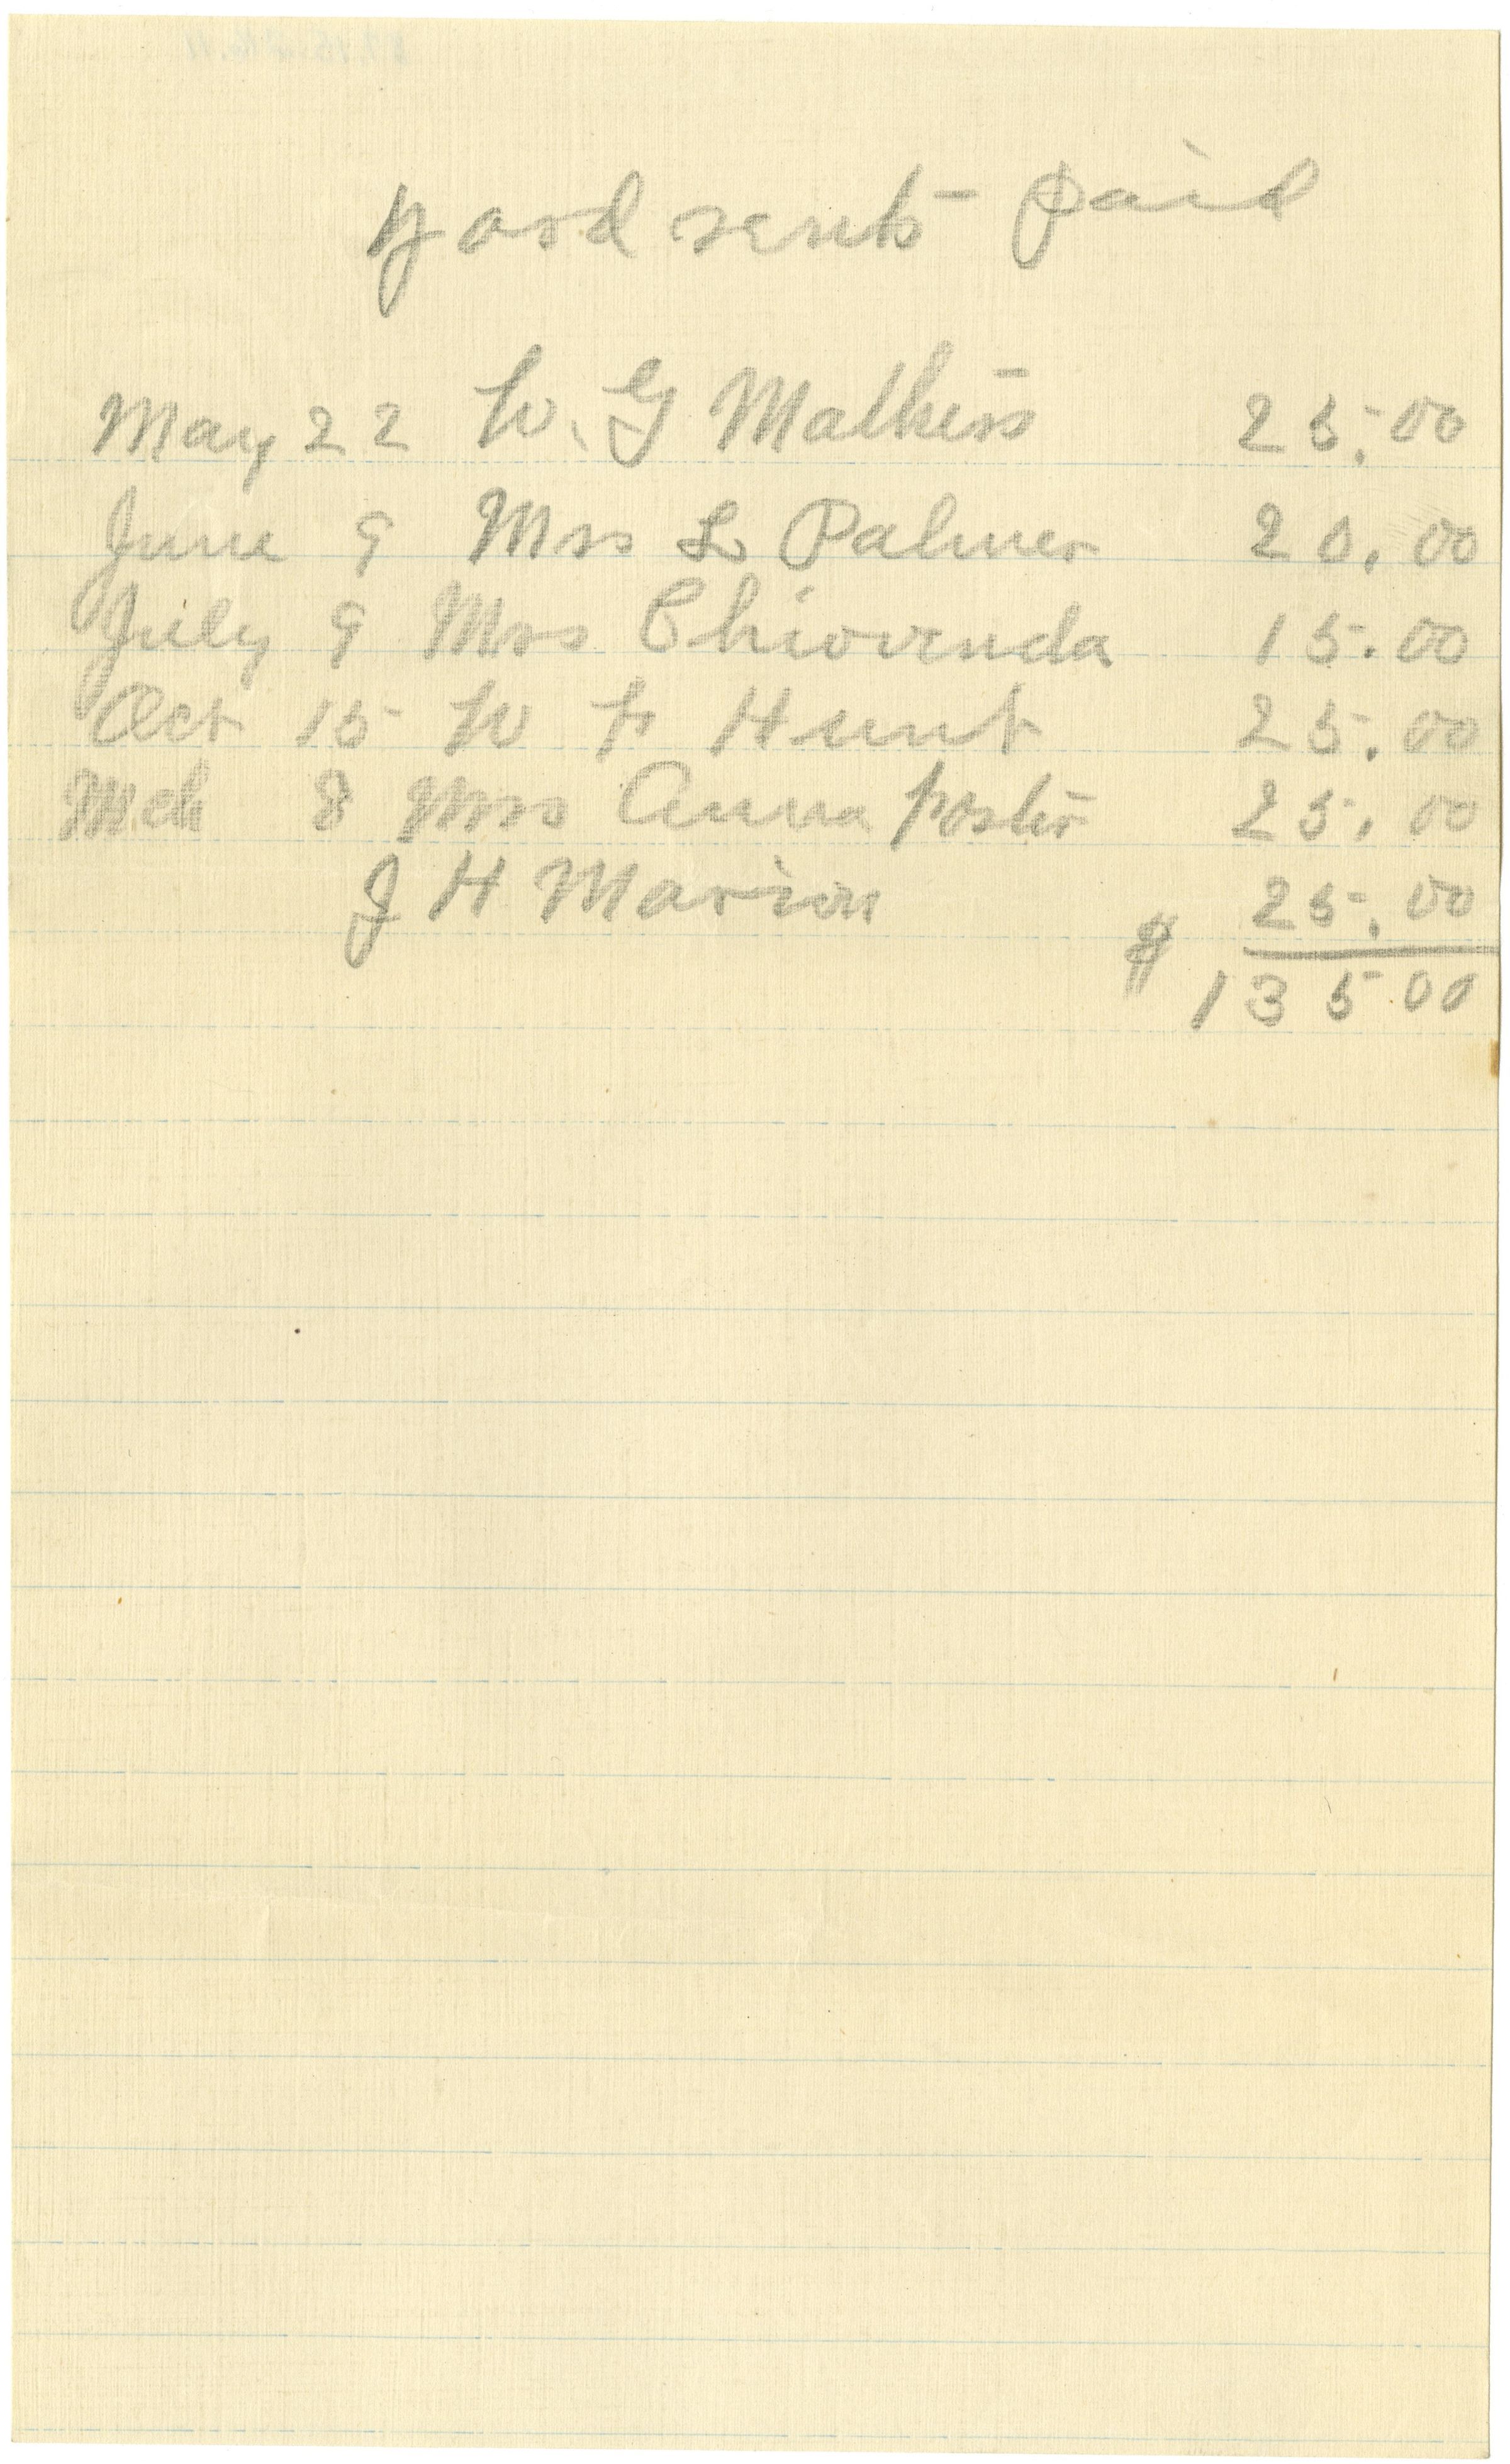 yard rents paid
May 22 W. G Mathess 25.00
June 9 Mrs L Palmer 20.00
July 9 Mrs Chiovenda 15.00
Oct 15 W F Hunt 25.00
Mch 8 Mrs Anna Foster 25.00
J H Marion 25.00
$ 135.00